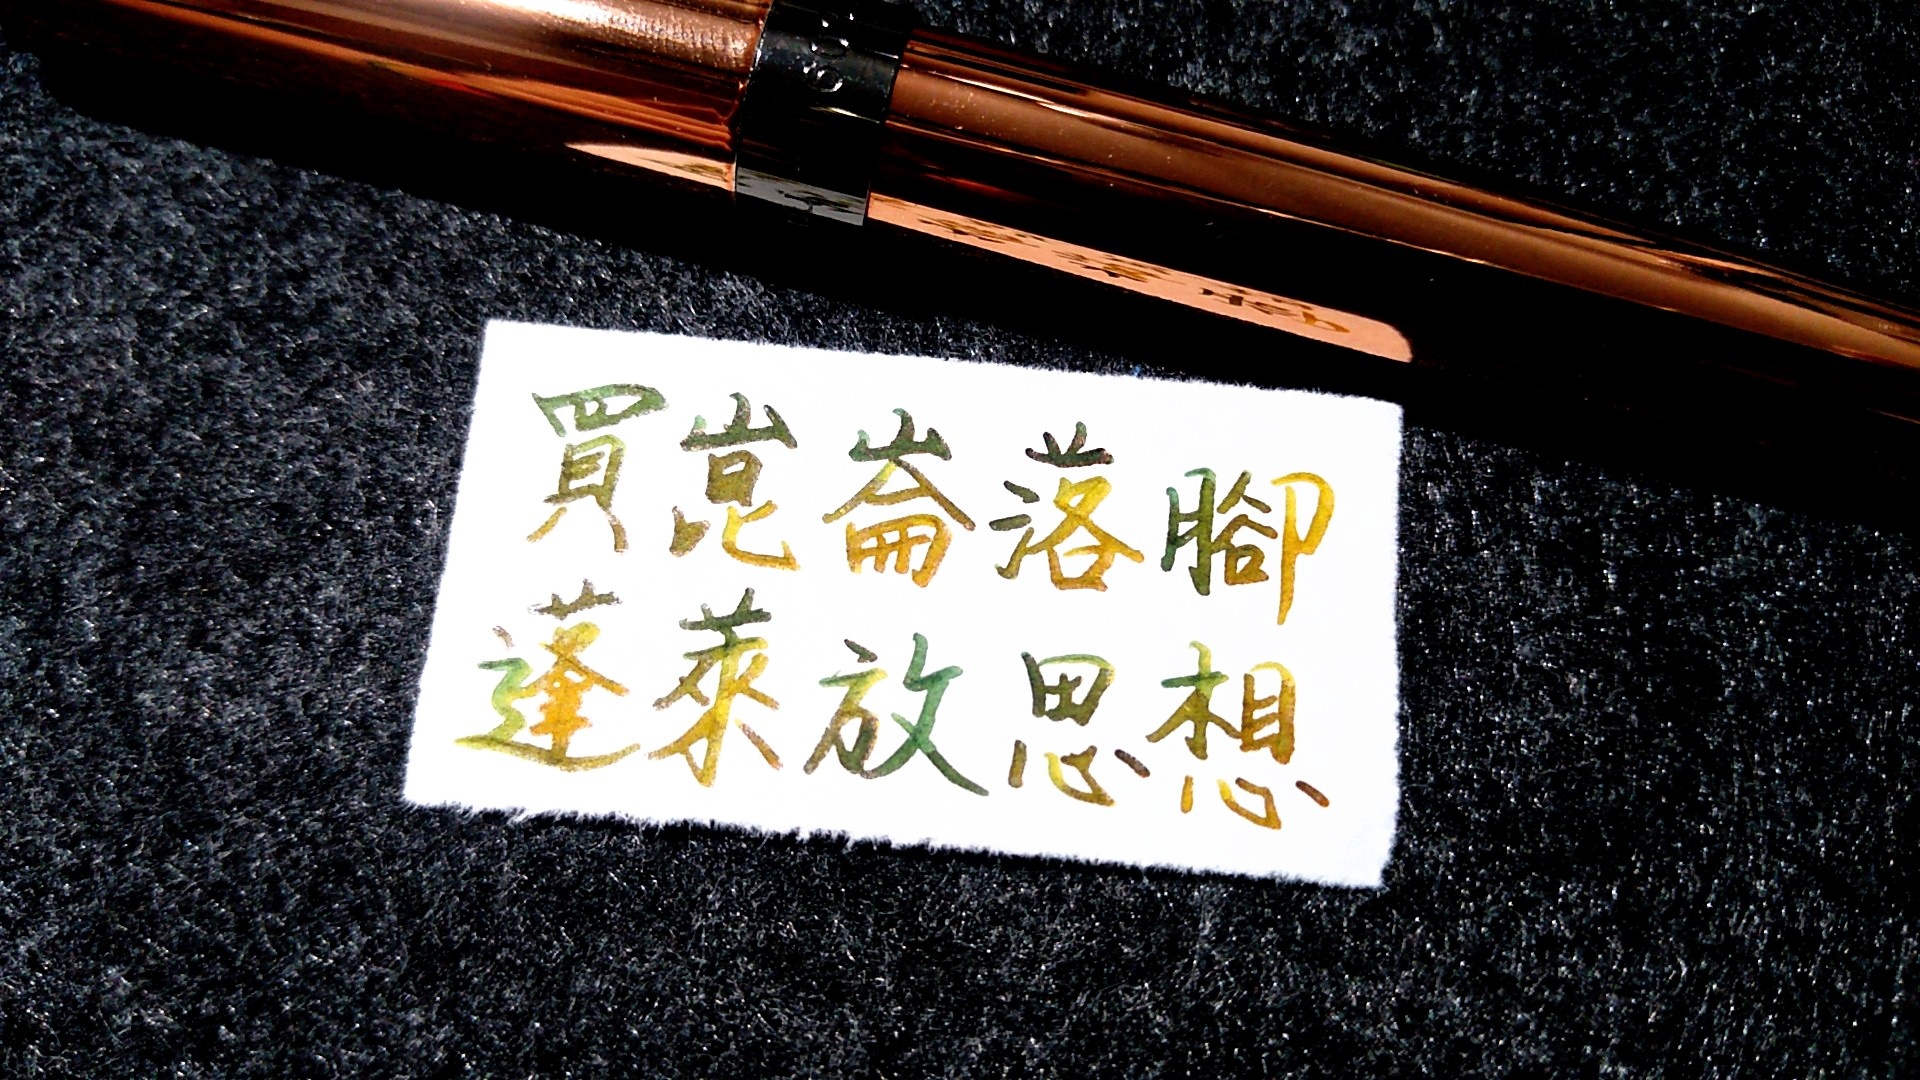 買崑崙落腳
蓬萊放思想